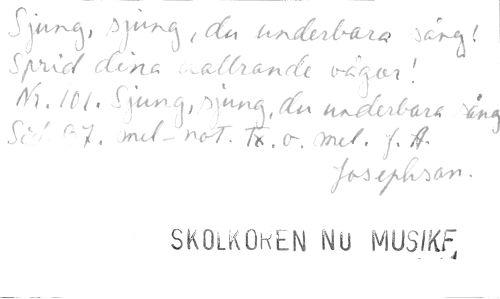 Sjung, sjung, du underbara sång!
Sprid dina vallrande vågor!
Nr. 101. Sjung, sjung, du underbara sång
Sid 87. mel-not. Tx. o. mel. J. A.
Josephson.
SKOLKOREN NU MUSIKF.